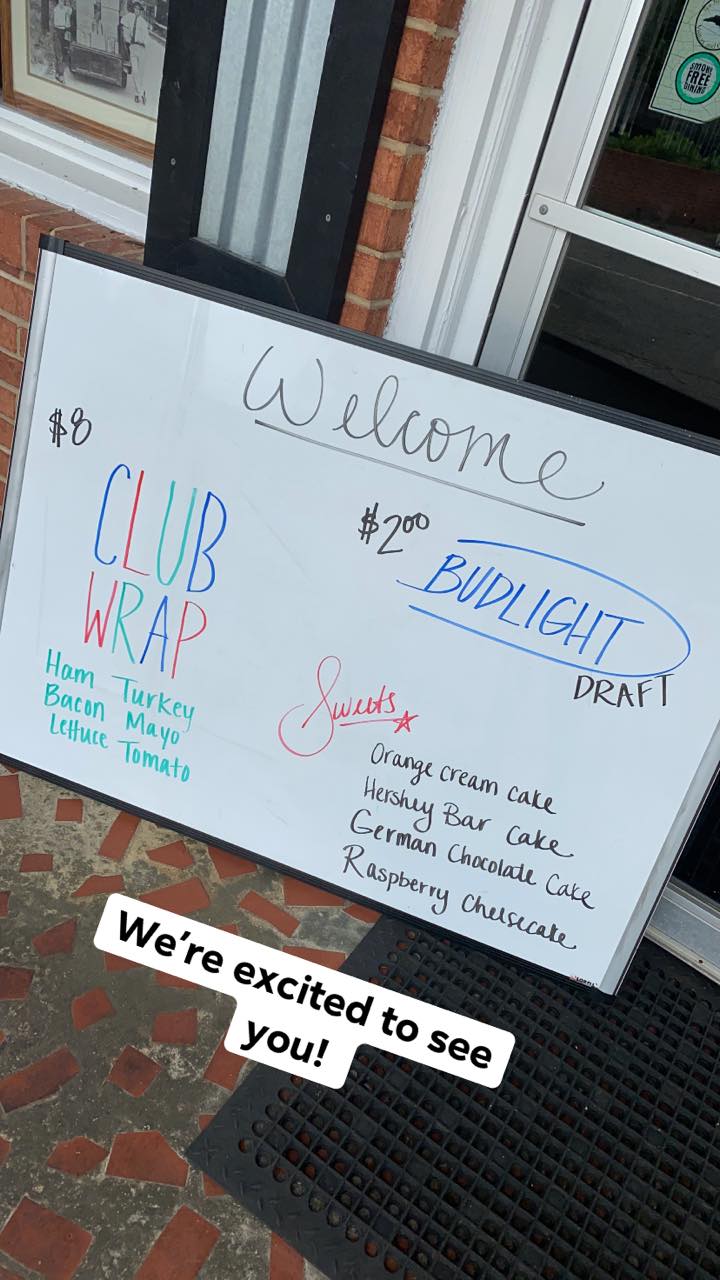 SMOKE
FREE
DINING
Welcome
$8
CLUB
WRAP
Ham Turkey
Bacon Mayo
Lettuce Tomato
$2.00
BUDLIGHT
DRAFT
Sweets
Orange cream cake
Hershey Bar Cake
German Chocolate Cake
Raspberry Cheesecake
We're excited to see
you!